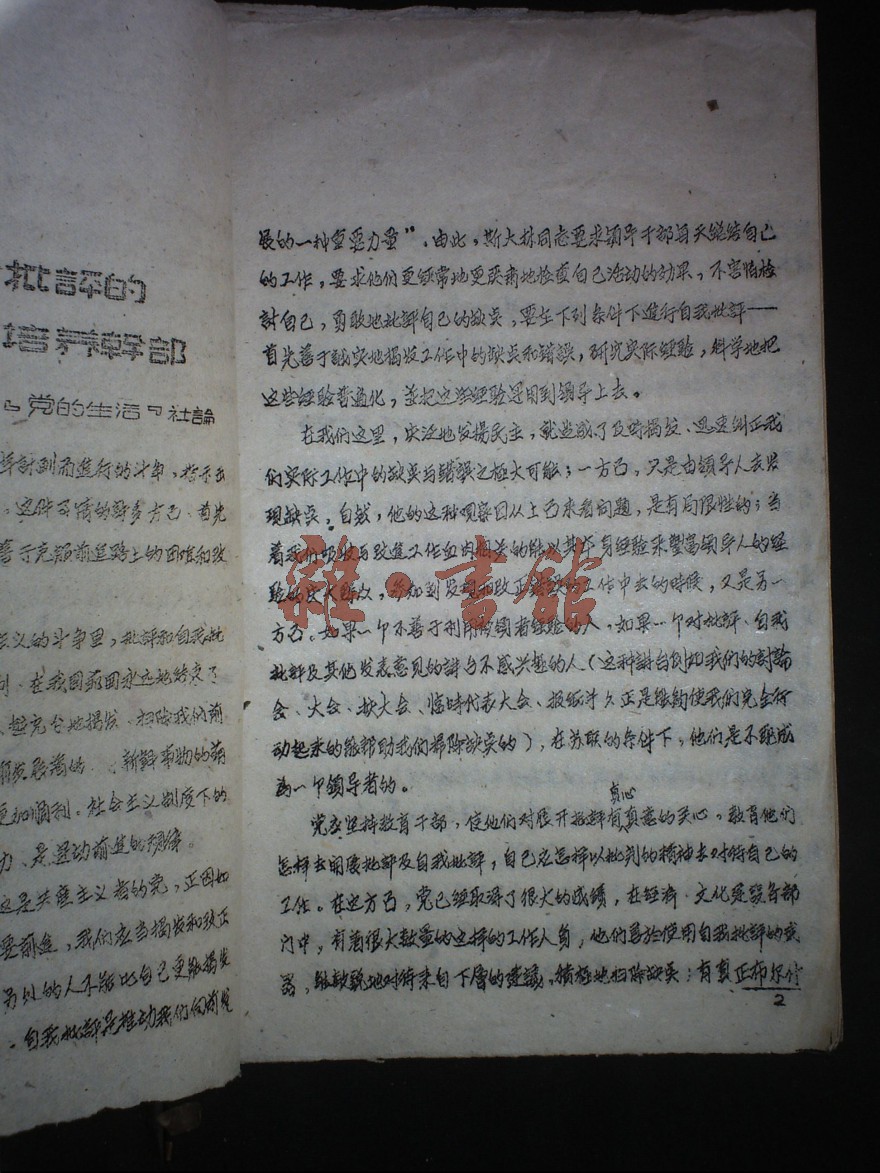 批評的
培养幹部
『党的生活』社論
計划而進行的斗争,
善于克服前進路上的困难和改
主义的斗争里,批評和自我批
在我国范围永远地结束了
充分地揭发、扫除我们前
新鲜事物的萌
更加順利。社会主义制度下的
力、是運动前進的規律。
这是共産主义者的党,正因如
要前進,我们应当揭发和改正
另外的人不能比自己更能揭发
自我批評是推动我们向前发
展的一种重要力量”。由此,斯大林同志要求領导干部每天總结自己
的工作,要求他们更经常地更严肃地检查自己活动的効果,不害怕检
討自己,勇敢地批評自己的缺点,要在下列条件下進行自我批評——
首先善于誠实地揭发工作中的缺点和错誤,研究实际经验,科学地把
这些经验普遍化,並把这些经验運用到領导上去。
在我们这里,広泛地发揚民主,就造成了及時揭发、迅速纠正我
们实际工作中的缺点与错誤之極大可能;一方面,只是由領导人去发
现缺点。自然,他的这种观察因从上面来看问題,是有局限性的;当
着我们吸收与改進工作血肉相关的能以其本身经验来豐富領导人的经
验的広大群众,参加到发现和改正缺点的工作中去的時候,又是另一
方面。如果一个不善于利用被領者经验的人,如果一个对批評、自我
批評及其他发表意见的讲台不感兴趣的人(这种讲台例如我们的討論
会、大会、扶大会、临時代表大会、报纸等,正是能夠使我们完全行
动起来的能帮助我们掃除缺点的),在苏联的条件下,他们是不能成
爲一个領导者的。
真心
党应坚持教育干部,使他们对展开批評有真意的关心,教育他们
怎样去開展批評及自我批評,自己应怎样以批判的精神去对待自己的
工作。在这方面,党已经取得了很大的成绩,在经济、文化建設各部
门中,有着很大数量的这样的工作人員,他们善於使用自我批評的武
器,能敏銳地对待来自下層的建議,積極地扫除缺点;有真正布尔什
2
雜·書館